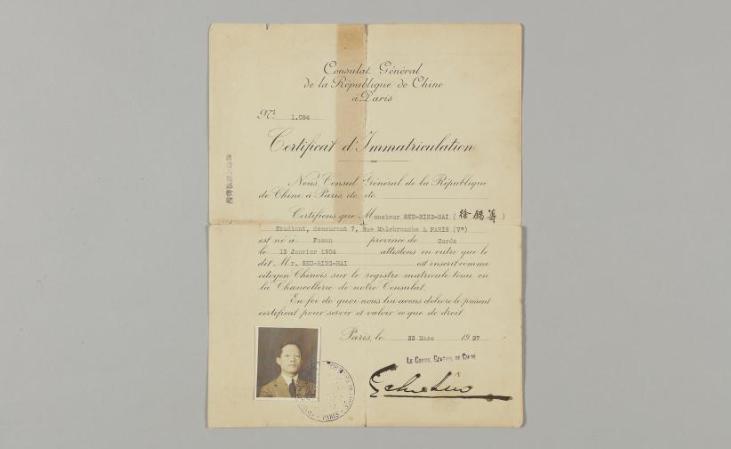 Consulat Général
de la République de Chine
à Paris
Nº. 1.084
Certificat d'Immatriculation
Nous Consul Général de la République
de Chine à Paris, de
Certifions que Monsieur SEU-RING-HAI (徐
Etudiant, demeurant 7, Rue Malebranche à PARIS (V°)
est né à Fusan province de Corée
le 12 Janvier 1904 attestons en outre que le
dit Mr. SEU-RING-HAI est inscrit comme
citoyen Chinois sur le registre matricule tenu en
la Chancellerie de notre Consulat.
En foi de quoi nous lui avons délivré le présent
certificat pour servir et valoir ce que de droit.
Paris, le Mars 1937
LE CONSUL GÉNÉRAL DE CHINE
PARIS